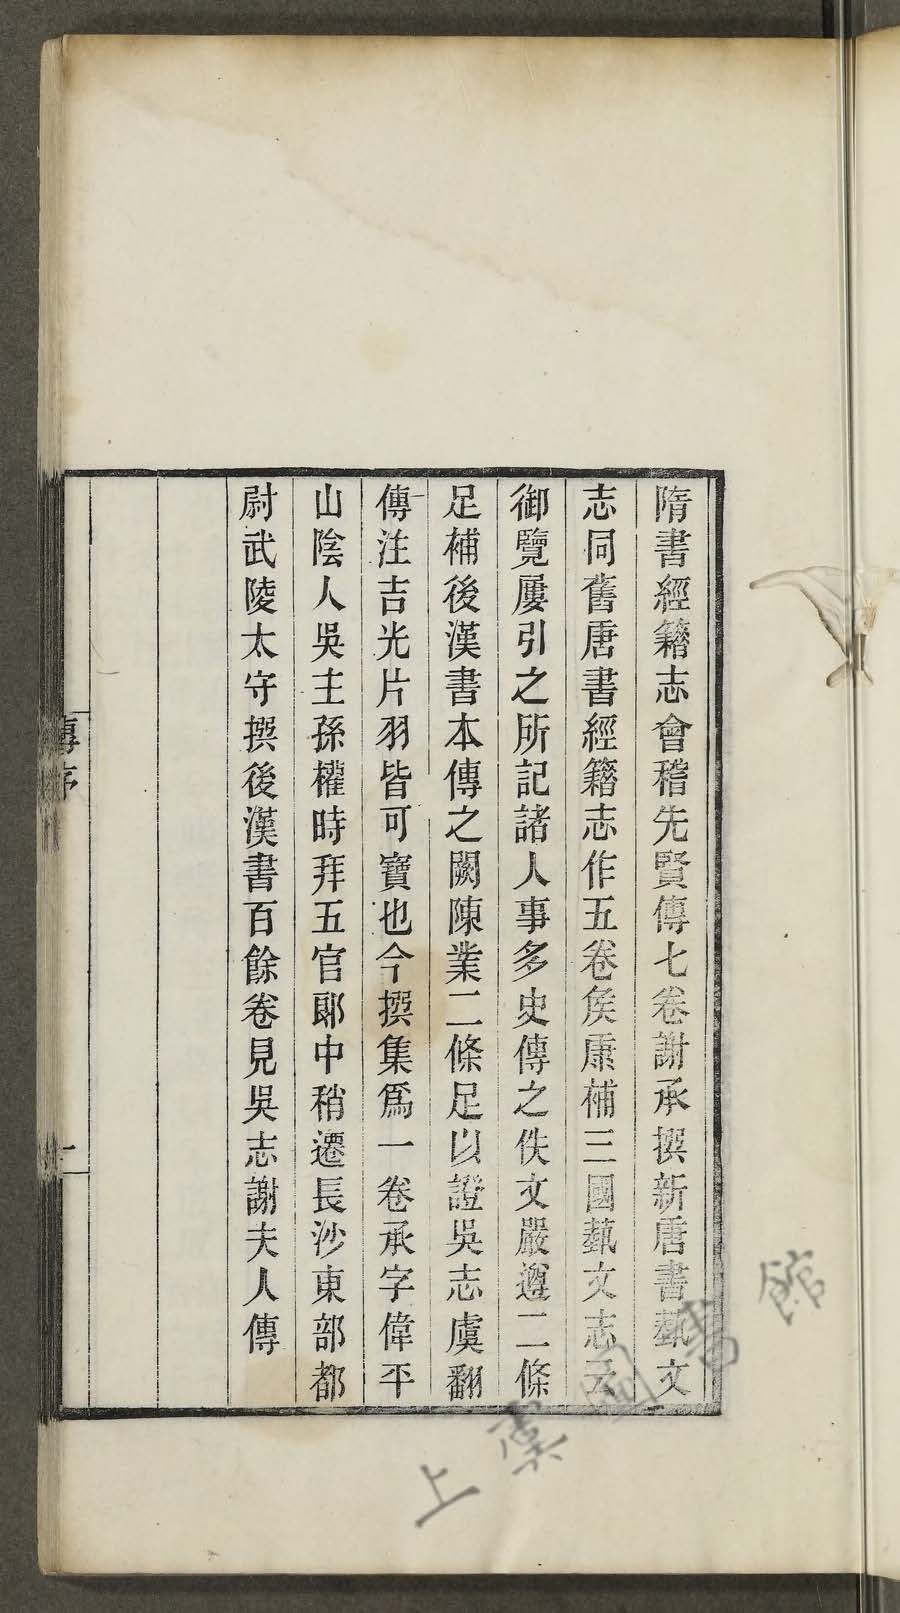 隋書經籍志會稽先賢傳七卷謝承撰新唐書藝文
志同舊唐書經籍志作五卷矦康補三國藝文志云
御覽屢引之所記諸人事多史傳之佚文嚴遵二條
足補後漢書本傳之闕陳業二條足以證吳志虞翻
傳注吉光片羽皆可寶也今撰集爲一卷承字偉平
山陰人吳主孫權時拜五官郎中稍遷長沙東部都
尉武陵太守撰後漢書百餘卷見吳志謝夫人傳
傳序
一
上虞圖書館